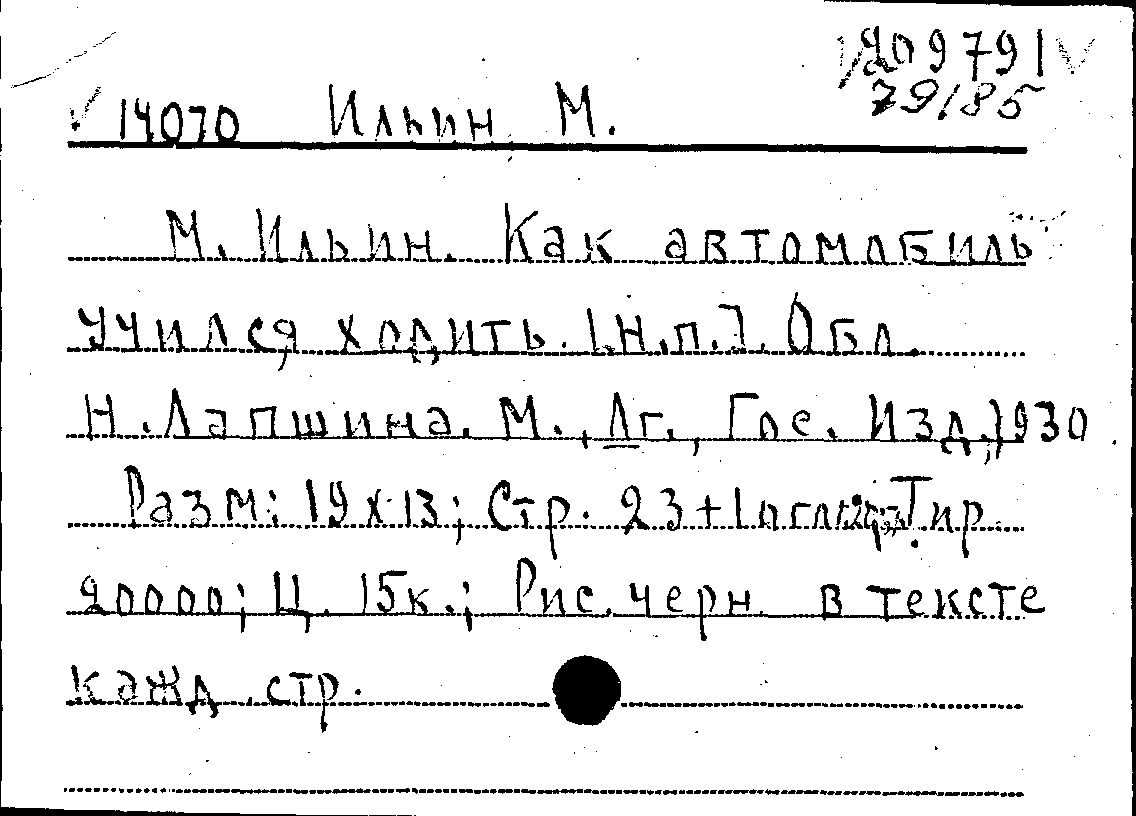 209791
79185
14070 Ильин, М.
М. Ильин. Как автомобиль
учился ходить. [Н.п.]. Обл.
Н. Лапшина. М., Лг., Гос. Изд., 1930
Разм: 19 х 13; Стр. 23+1 огл; Тир.
20000; Ц. 15к.; Рис. черн. в тексте
кажд. стр.